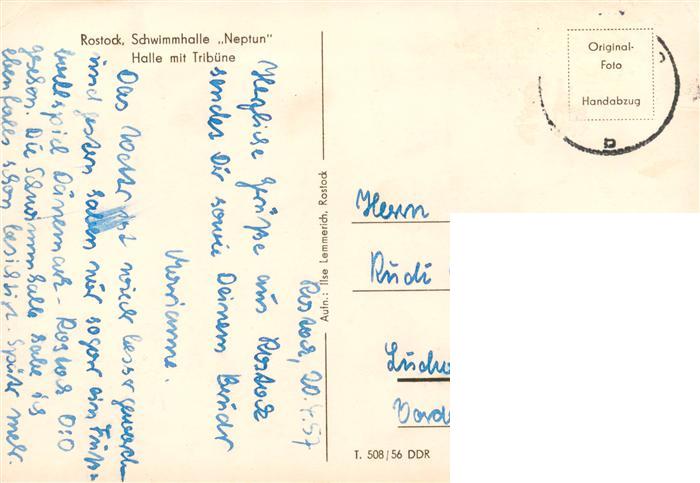 Rostock, Schwimmhalle „Neptun"
Halle mit Tribüne
Original-
Foto
Handabzug
Aufn.: Ilse Lemmerich, Rostock
Rostock, 20.4.57
Herzliche Grüße aus Rostock
sendet Dir sowie Deinem Bruder
Marianne.
Das Wetter ist wieder besser geworden
und gestern sahen wir sogar ein Fuß=
ballspiel Dänemark - Rostock 0:0
gesehen. Die Schwimmhalle habe ich
ebenfalls schon besichtigt. Später mehr.
Herrn
Rudi
Ludw
Vord
T. 508/56 DDR